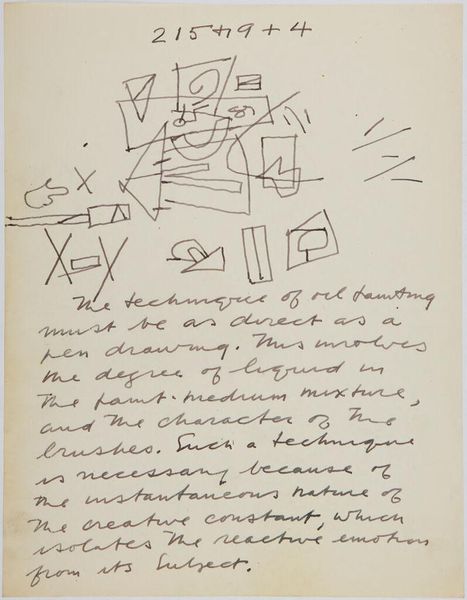 215+19+4
The technique of oil painting
must be as direct as a
pen drawing. This involves
the degree of liquid in
the paint-medium mixture,
and the character of the
brushes. Such a technique
is necessary because of
the instantaneous nature of
the creative constant, which
isolates the reactive emotion
from its subject.